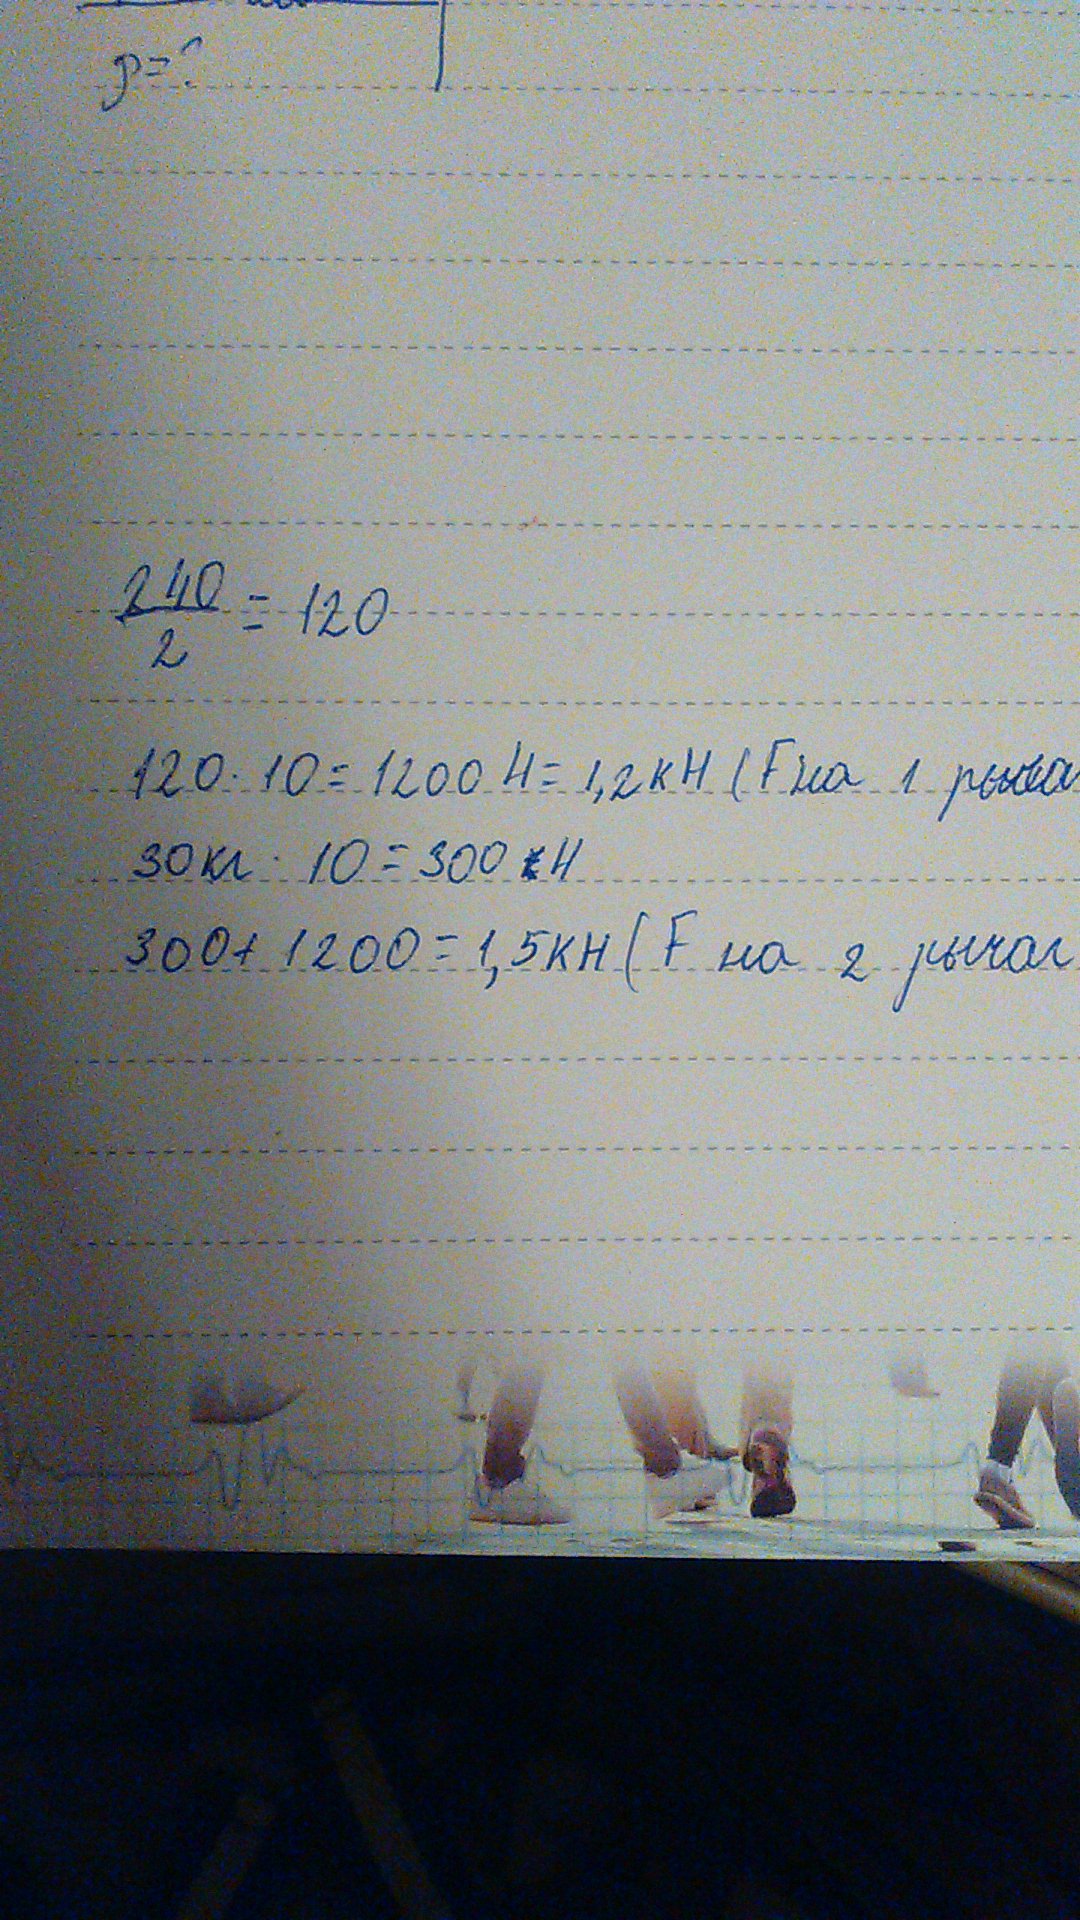 p=?
240
2
= 120
120 · 10 = 1200 Н = 1,2 кН ( F на 1 рычаг
30 кг · 10 = 300 Н
300 + 1200 = 1,5 кН ( F на 2 рычаг